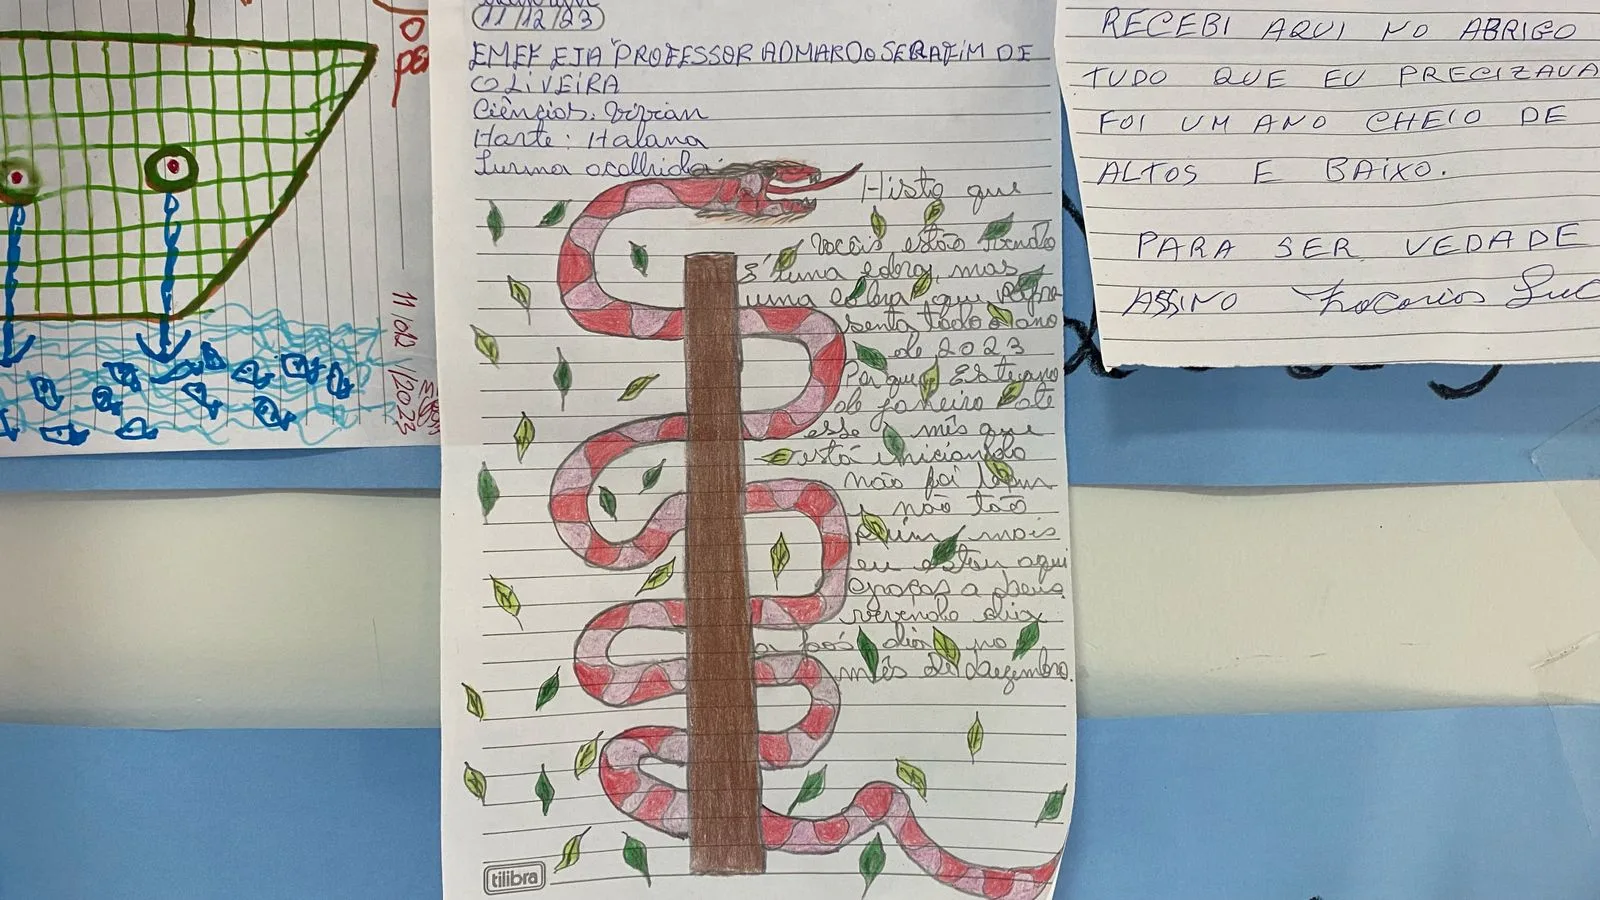 O
PE
11/02/2023
11/12/23
EMEF EJA PROFESSOR ADMARDO SERAFIM DE
OLIVEIRA
Ciências: Vivian
Harte: Halana
turma acolhida
Histo que
vocêis estão vendo
É uma cobra, mas
uma cobra que repre
senta todo o ano
de 2023
Porque Este ano
de janeiro até
esse mês que
está iniciando
não foi bom
e não tão
ruim mais
eu estou aqui
graças a Deus
vevendo dix
a pós dia no
mês de dezembro.
tilibra
RECEBI AQUI NO ABRIGO
TUDO QUE EU PRECIZAVA
FOI UM ANO CHEIO DE
ALTOS E BAIXO.
PARA SER VEDADE
ASSINO